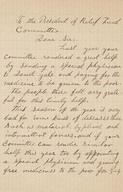 To the President of Relief Fund
Committee.
Dear Sir:
Last year your
committee rendered a great help
by sending a special physician
to Sanil gale and paying for the
medicine to be given to the poor.
The people there felt very grate-
ful for this timely help.
This season of the year is very
bad for some kinds of diseases there
such as malaria, typhoid and
intermittent fevers, and if your
Committee can render similar
help this year too by appointing
a special physician and giving
free medicines to the poor for big